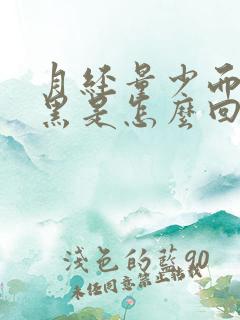 月经量少而
黑是怎麼回
浅色的藍90
未任同意禁止转载